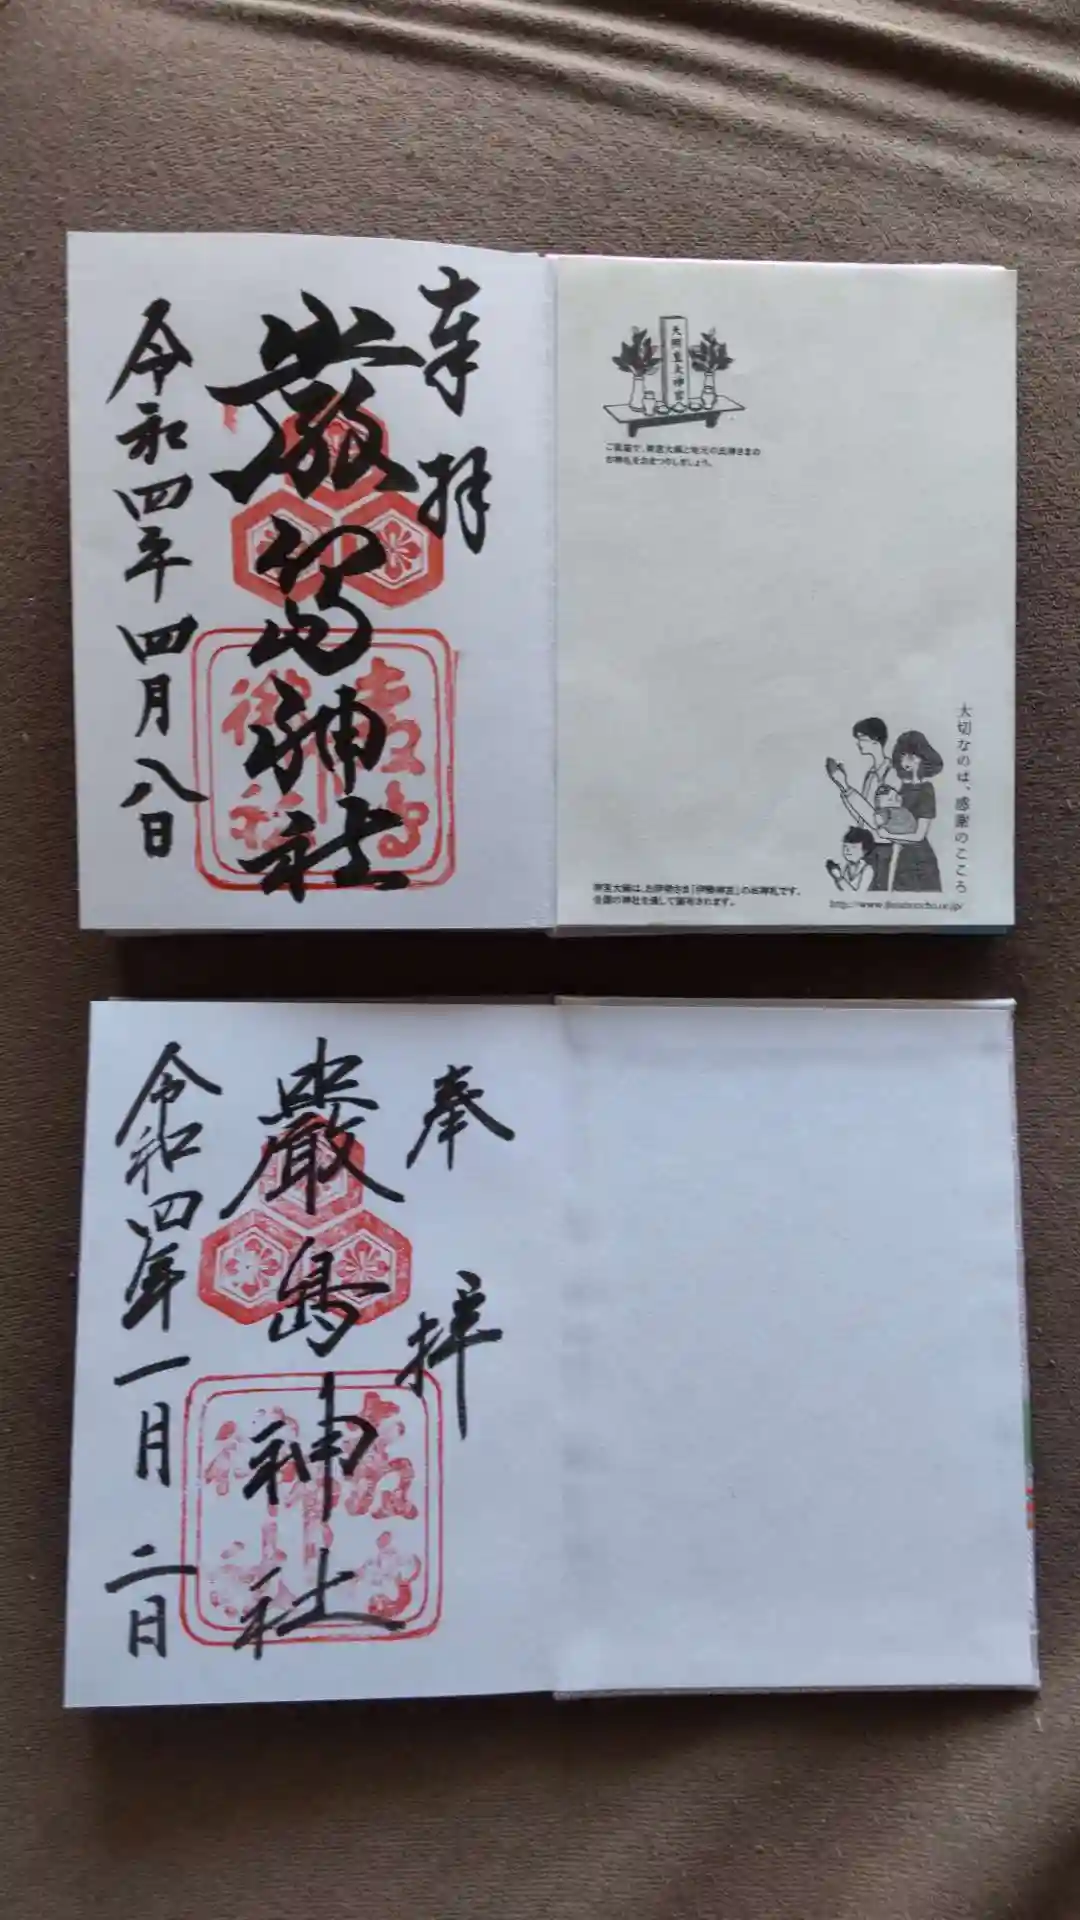 奉拝
嚴島神社
令和四年四月八日
嚴島
御神社
天照皇大神宮
ご家庭で、神宮大麻と地元の氏神さまの
お神札をおまつりしましょう。
大切なのは、感謝のこころ
神宮大麻は、お伊勢さま「伊勢神宮」の お神札です。
全国の神社を通して頒布されます。
http://www.jinjahoncho.or.jp/
奉拝
嚴島神社
令和四年一月二日
嚴島
御神社